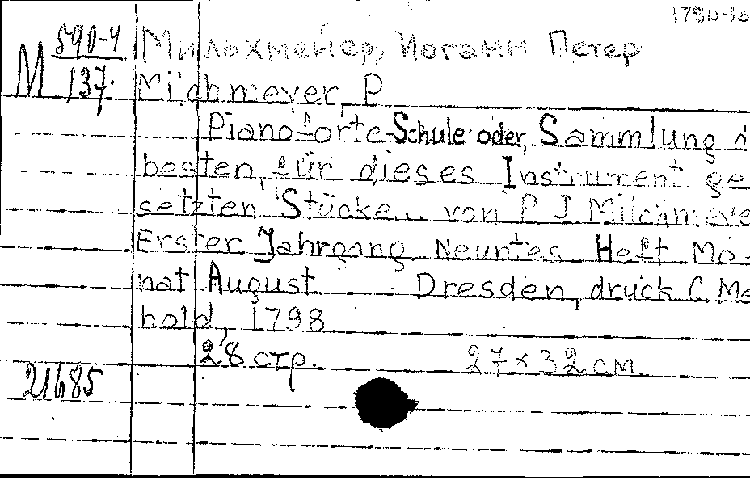 1750-18
M 590-4
137.
Мильхмейер, Иоганн Петер
Milchmeyer, P
Piano-forte-Schule oder, Sammlung d
besten, für dieses Instrument ge
setzten Stücke... von P J Milchmeye
Erster Jahrgang Neuntes Heft Mo-
nat August Dresden, druck C. Me
hold, 1798
28 стр. 27×32 см.
21685